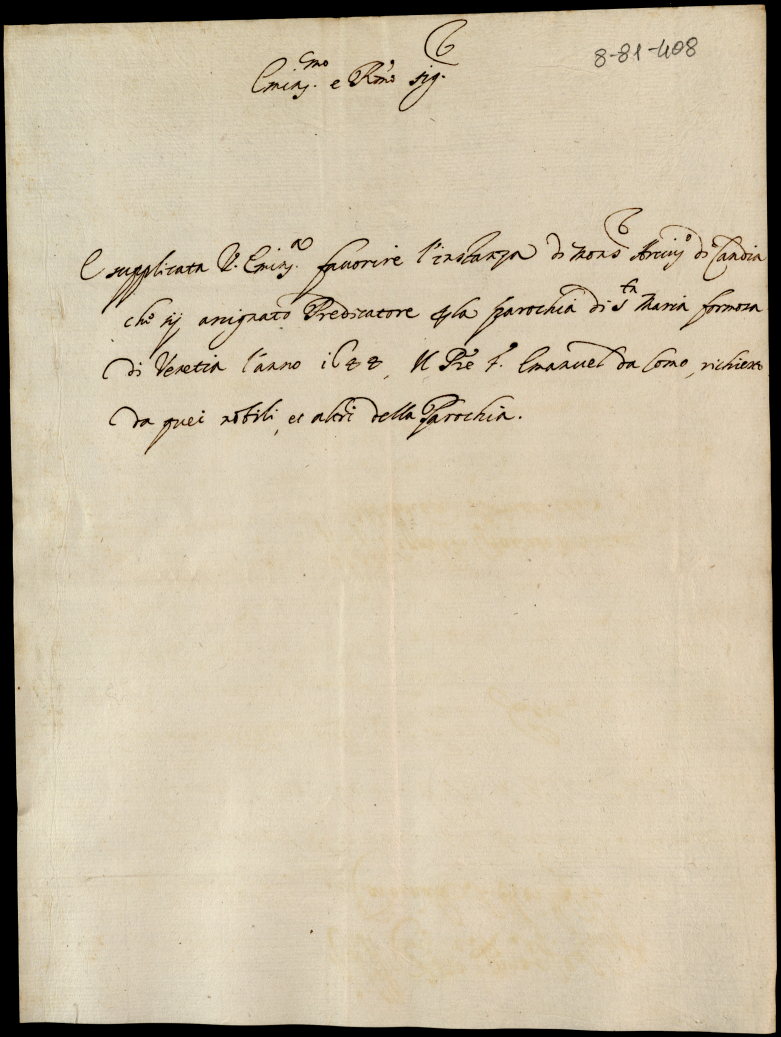 8-81-408
Emin.mo e Rmo sig.r
E supplicata V. Emin.a fauorire l'instanza di Mons.r Arciu.o di Candia
che sij assignato Predicatore p la Parochia di S.ta Maria formosa
di Venetia l'anno 1644, Il Pre f. Emanuel da Como, richiesto
da quei nobili, et altri della Parochia.